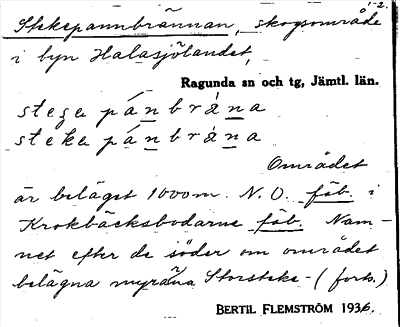 Stekepannbrännan, skogsområde 1-2.
i byn Halasjölandet,
Ragunda sn och tg, Jämtl. län.
stege pánbrána
steke pánbrána
Området
är beläget 1000 m. N.O. fäb. i
Krokbäcksbodarne fäb. Nam-
net efter de söder om området
belägna myrarna Storsteke- (forts.)
BERTIL FLEMSTRÖM 1936.